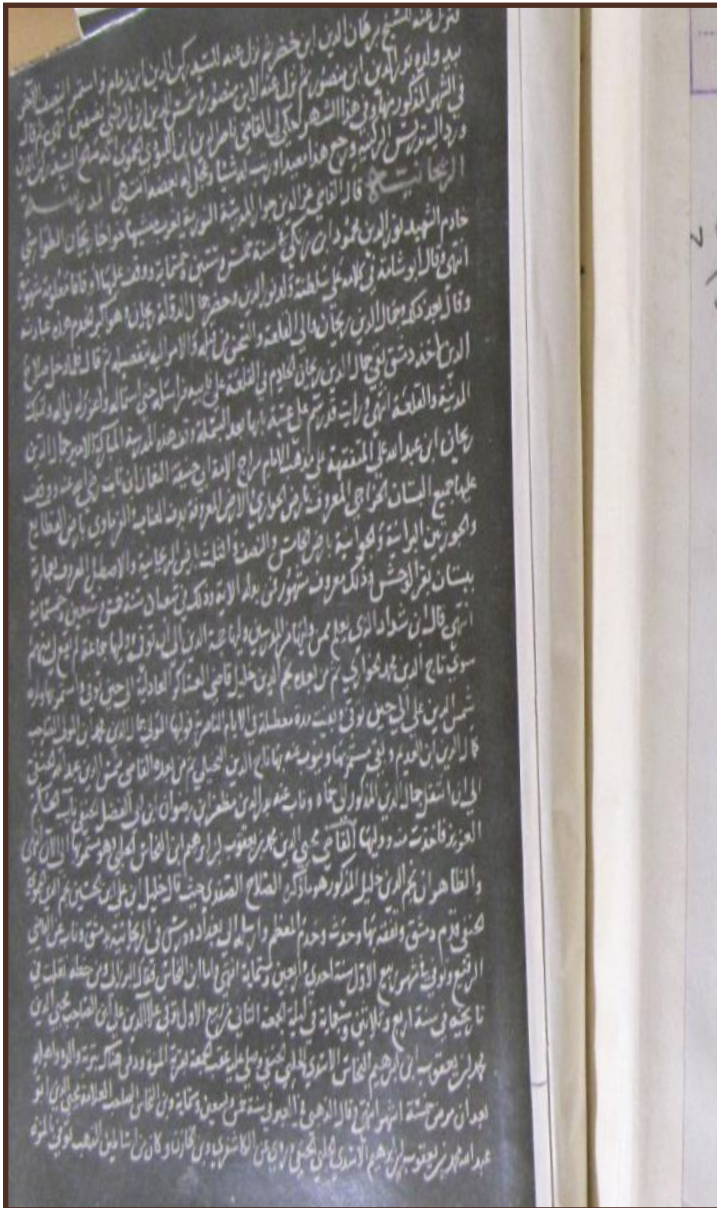 فنزل عنه للشيخ برهان الدين ابن خضر ثم نزل عنه للسيد ركن الدين ابن زمام واستمر النصف الآخر
بيد ولده نور الدين ابن منصور ثم نزل عنه لابن منصور وشمس الدين ابن الرضي نصفين انتهى ثم قال
في الشهر المذكور منها وفي هذا الشهر حكى لي القاضي ناصر الدين ابن اللبودي
ورد اليه تدريس الركنية ورجع هذا معيدا ورتب له شيئا انتهى المدرسة
الريحانية قال القاضي عز الدين جوا المدرسة النورية لغرب منشيها خواجا ريحان الطواشي
خادم الشهيد نور الدين محمود ابن زنكي في سنة خمس وستين وخمسماية ووقف عليها اوقافا معلومة مشهورة
انتهى وقال ابو شامة في كلامه على سلطنة ولد نور الدين وحضر جمال الدولة ريحان وهو اكبر الخدم
وقال بعد ذلك وجمال الدين ريحان والي القلعة والسجن ثم قال فلما دخل صلاح
الدين واخذ دمشق بقي جمال الدين ريحان الخادم في القلعة على تأبيه فراسله حتى استماله واغزر له نواله وتملك
المدينة والقلعة انتهى ورايت قد رسم على عتبة بابها بعد البسملة وقف هذه المدرسة المباركة الامير جمال الدين
ريحان ابن عبدالله على المتفقهة على مذهب الامام سراج الامة ابي حنيفة النعمان ابن ثابت رضي الله عنه ووقف
عليها جميع البستان الخراجي المعروف بارض الحواري والارض المعروفة بارض القطايع
والجورتين البرانية والجوانية بارض الخامس والنصف والثلث بارض الريحانية والاصطبل المعروف بعمارة
ببستان بقر الوحش وذلك معروف مشهور فمن بدله الاية وذلك في شعبان سنة خمس سبعين وخمسماية
انتهى قال ابن شداد الذي يعلم ممن وليها من المدرسين وليها الى ان توفي وليها جماعة لم يقع لي منهم
سوى تاج الدين محمد ثم من بعده نجم الدين خليل قاضي العسكر العادلي الى حين توفي واستمر بها ولده
شمس الدين علي الى حين توفي وبقيت مدة معطلة في الايام الناصرية فوليها المولى جمال الدين محمد ابن المولى الصاحب
كمال الدين ابن العديم وبقي مستمر بها وينوب عنه بها تاج الدين ثم من بعده القاضي شمس الدين عبد الله الحنفي
الى ان انتقل جمال الدين المذكور الى حماه وناب عنه بدر الدين مظفر ابن رضوان ابن ابي الفضل الحنفي نايب الحكم
العزيز فاخذت منه ووليها القاضي محيي الدين محمد بن يعقوب ابن ابرهيم ابن النحاس الحلبي وهو مستمر بها الى الان انتهى
والظاهر ان نجم الدين خليل المذكور هو ما ذكره الصلاح الصفدي حيث قال خليل ابن علي ابن الحسين نجم الدين الحموي
الحنفي قدم دمشق وتفقه بها وحدث وخدم المعظم وارسله الى بغداد ودرس في الريحانية بدمشق وناب عن القاضي
الرفيع وتوفي في شهر ربيع الاول سنة احدى واربعين وستماية انتهى واما ابن النحاس فقال البرزالي ومن خطه نقلت في
تاريخه في سنة اربع وثلاثين وسبعماية في ليلة الجمعة الثاني من ربيع الاول توفي علا الدين علي ابن الصاحب محيي الدين
محمد بن يعقوب ابن ابرهيم النحاس الاسدي الحلبي الحنفي وصلي عليه عقب الجمعة بقرية المزة ودفن هناك بتربة والده واهله
بعد ان مرض خمسة اشهر انتهى وقال الذهبي في العبر في سنة خمس وتسعين وستماية وابن النحاس الصاحب العلامة محيي الدين ابو
عبدالله محمد بن يعقوب ابن ابرهيم الاسدي الحلبي الحنفي روى عن الكاشغري وابن الخازن وكان من اساطين المذهب توفي بالمزة